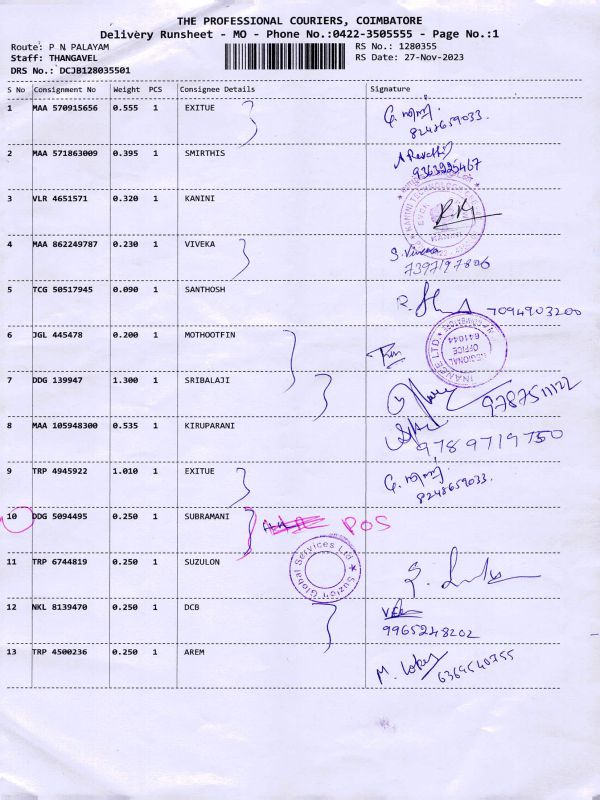 THE PROFESSIONAL COURIERS, COIMBATORE
Delivery Runsheet - MO - Phone No.:0422-3505555 - Page No.:1
Route: P N PALAYAM RS No.: 1280355
Staff: THANGAVEL RS Date: 27-Nov-2023
DRS No.: DCJB128035501
S No Consignment No Weight PCS Consignee Details Signature
1 MAA 570915656 0.555 1 EXITUE
8248659033
2 MAA 571863009 0.395 1 SMIRTHIS A Revathi
9363225467
3 VLR 4651571 0.320 1 KANINI
4 MAA 862249787 0.230 1 VIVEKA S. Viveka
7397197806
5 TCG 50517945 0.090 1 SANTHOSH
7094903200
6 JGL 445478 0.200 1 MOTHOOTFIN
REGIONAL
OFFICE
641044
7 DDG 139947 1.300 1 SRIBALAJI
8 MAA 105948300 0.535 1 KIRUPARANI
9789719750
9 TRP 4945922 1.010 1 EXITUE
8248659033
10 DDG 5094495 0.250 1 SUBRAMANI POS
11 TRP 6744819 0.250 1 SUZULON
Global Services Ltd
12 NKL 8139470 0.250 1 DCB
9965248202
13 TRP 4500236 0.250 1 AREM
6369540355